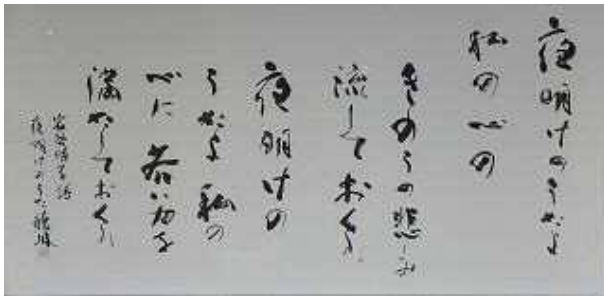 夜明けのうたよ
私の心の
きのうの悲しみ
流しておくれ
夜明けの
うたよ 私の
心に 若い力を
満たしておくれ
岩谷時子詩
夜明けのうた